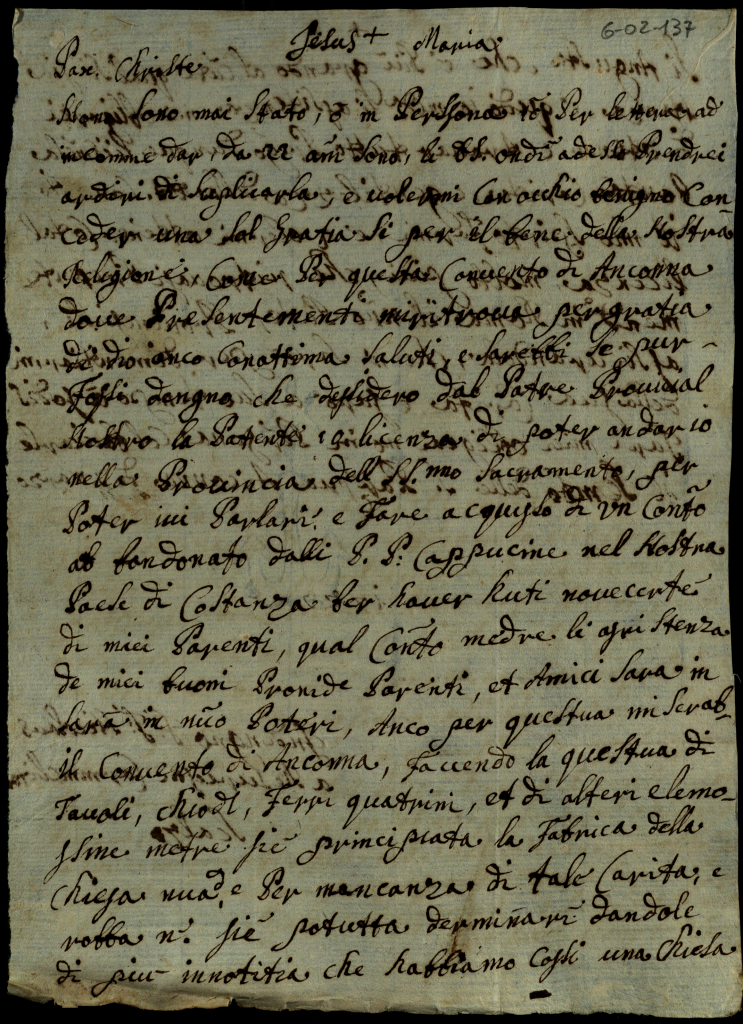 6-02-137
Jesus + Maria
Pax Christi
Non sono mai stato, ò in Perssona ò Per lettera ad
incomme dar, da 22 anni sono, li ondi adesso Prendrei
ardiri di Suplicarla, e volermi Con occhio benigno Con-
ceder una tal Gratia si per il bene della Nostra
Religione, Come Per questa Convento di Anconna
dove Presentementi mi ritrova per gratia
di dio anco Conottima Saluti, e Sarebbi Se pur-
fossi dengno che dessidero dal Patre Provincial
Nostro la Pattente, o licenza di poter andar io
nella Provincia dell SS.mo Sacramento, per
Poter ivi Parlari e Fare acquisto di un Conto
ab bandonato dalli P. P. Cappucine nel Nostra
Paese di Costanza ber haver huti
di miei Parenti, qual Conto medre li
de miei buoni Parenti, et Amici Sara in
in Poteri, Anco per questua
il Convento di Anconna, Faccendo la questua di
Tavoli, chiodi, Ferri quatrini, et di alteri elemo-
ssine metre siè principiata la Fabrica della
Chiesa e Per mancanza di tale Carita, e
robba n. siè potutta derminari dandole
di più innotitia che habbiamo Cossi una Chiesa